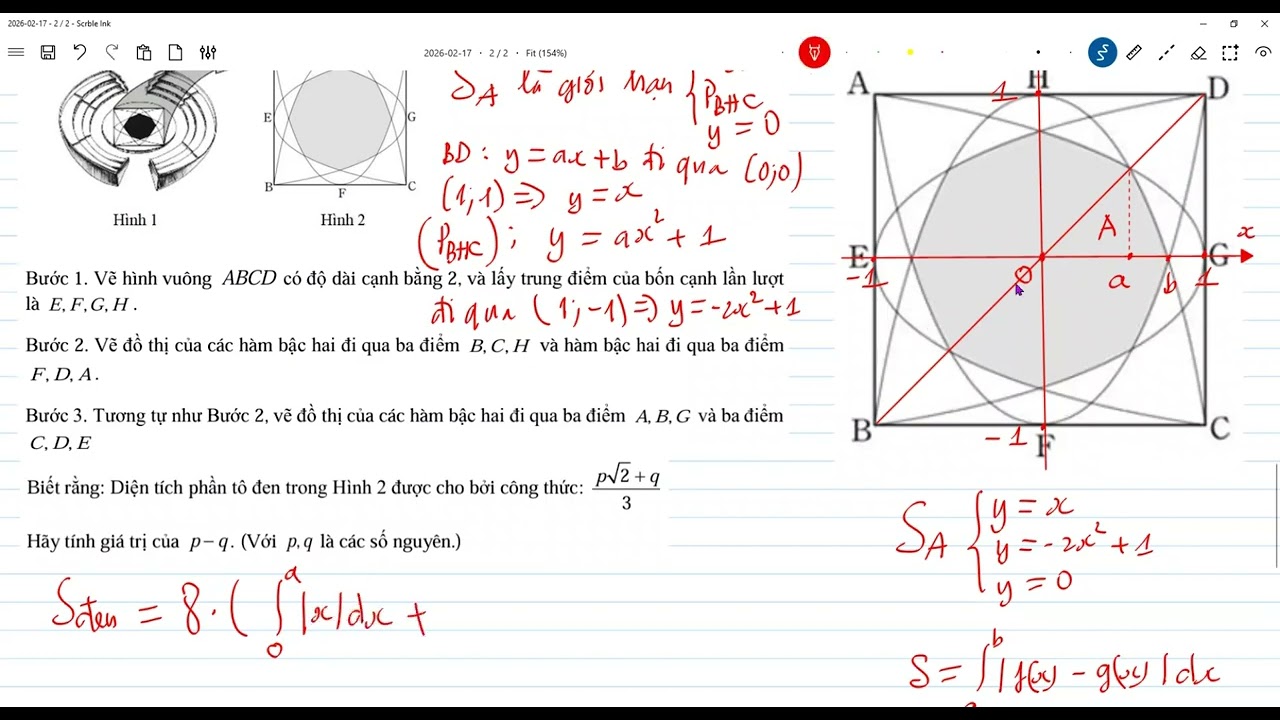 2026-02-17 - 2 / 2 - Scrble Ink
2026-02-17 • 2 / 2 • Fit (154%)
E
G
B
F
C
Hình 1
Hình 2
S_A là giới hạn {
P_BHC
y = 0
BD : y = ax + b đi qua (0;0)
(1;1) => y = x
(P_BHC) ; y = ax² + 1
Bước 1. Vẽ hình vuông ABCD có độ dài cạnh bằng 2, và lấy trung điểm của bốn cạnh lần lượt
là E, F, G, H .
đi qua (1;-1) => y = -2x² + 1
Bước 2. Vẽ đồ thị của các hàm bậc hai đi qua ba điểm B, C, H và hàm bậc hai đi qua ba điểm
F, D, A .
Bước 3. Tương tự như Bước 2, vẽ đồ thị của các hàm bậc hai đi qua ba điểm A, B, G và ba điểm
C, D, E
Biết rằng: Diện tích phần tô đen trong Hình 2 được cho bởi công thức: (p√2 + q)/3
Hãy tính giá trị của p − q . (Với p, q là các số nguyên.)
S_đen = 8 . ( ∫₀ᵃ |x| dx +
A
1
H
D
A
x
E
-1
O
a
b
1
G
B
-1
F
C
S_A { y = x
y = -2x² + 1
y = 0
S = ∫ᵇ |f(x) - g(x)| dx